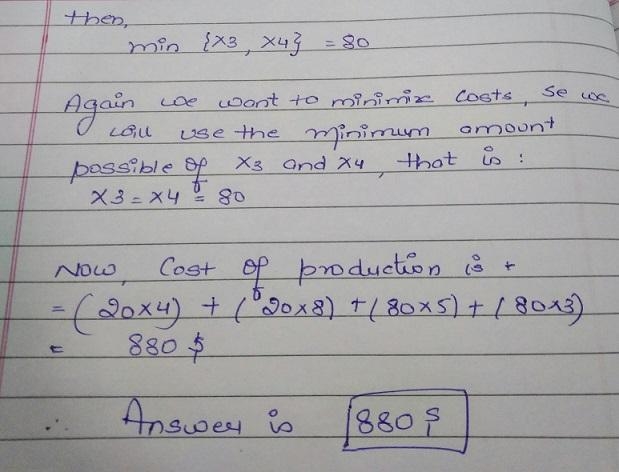 then,
min {x3, x4} = 80
Again we want to minimix costs, se we
will use the minimum amount
possible of x3 and x4, that is :
x3 = x4 = 80
Now, Cost of production is +
= (20x4) + (20x8) + (80x5) + (80x3)
= 880 $
∴ Answer is 880 $